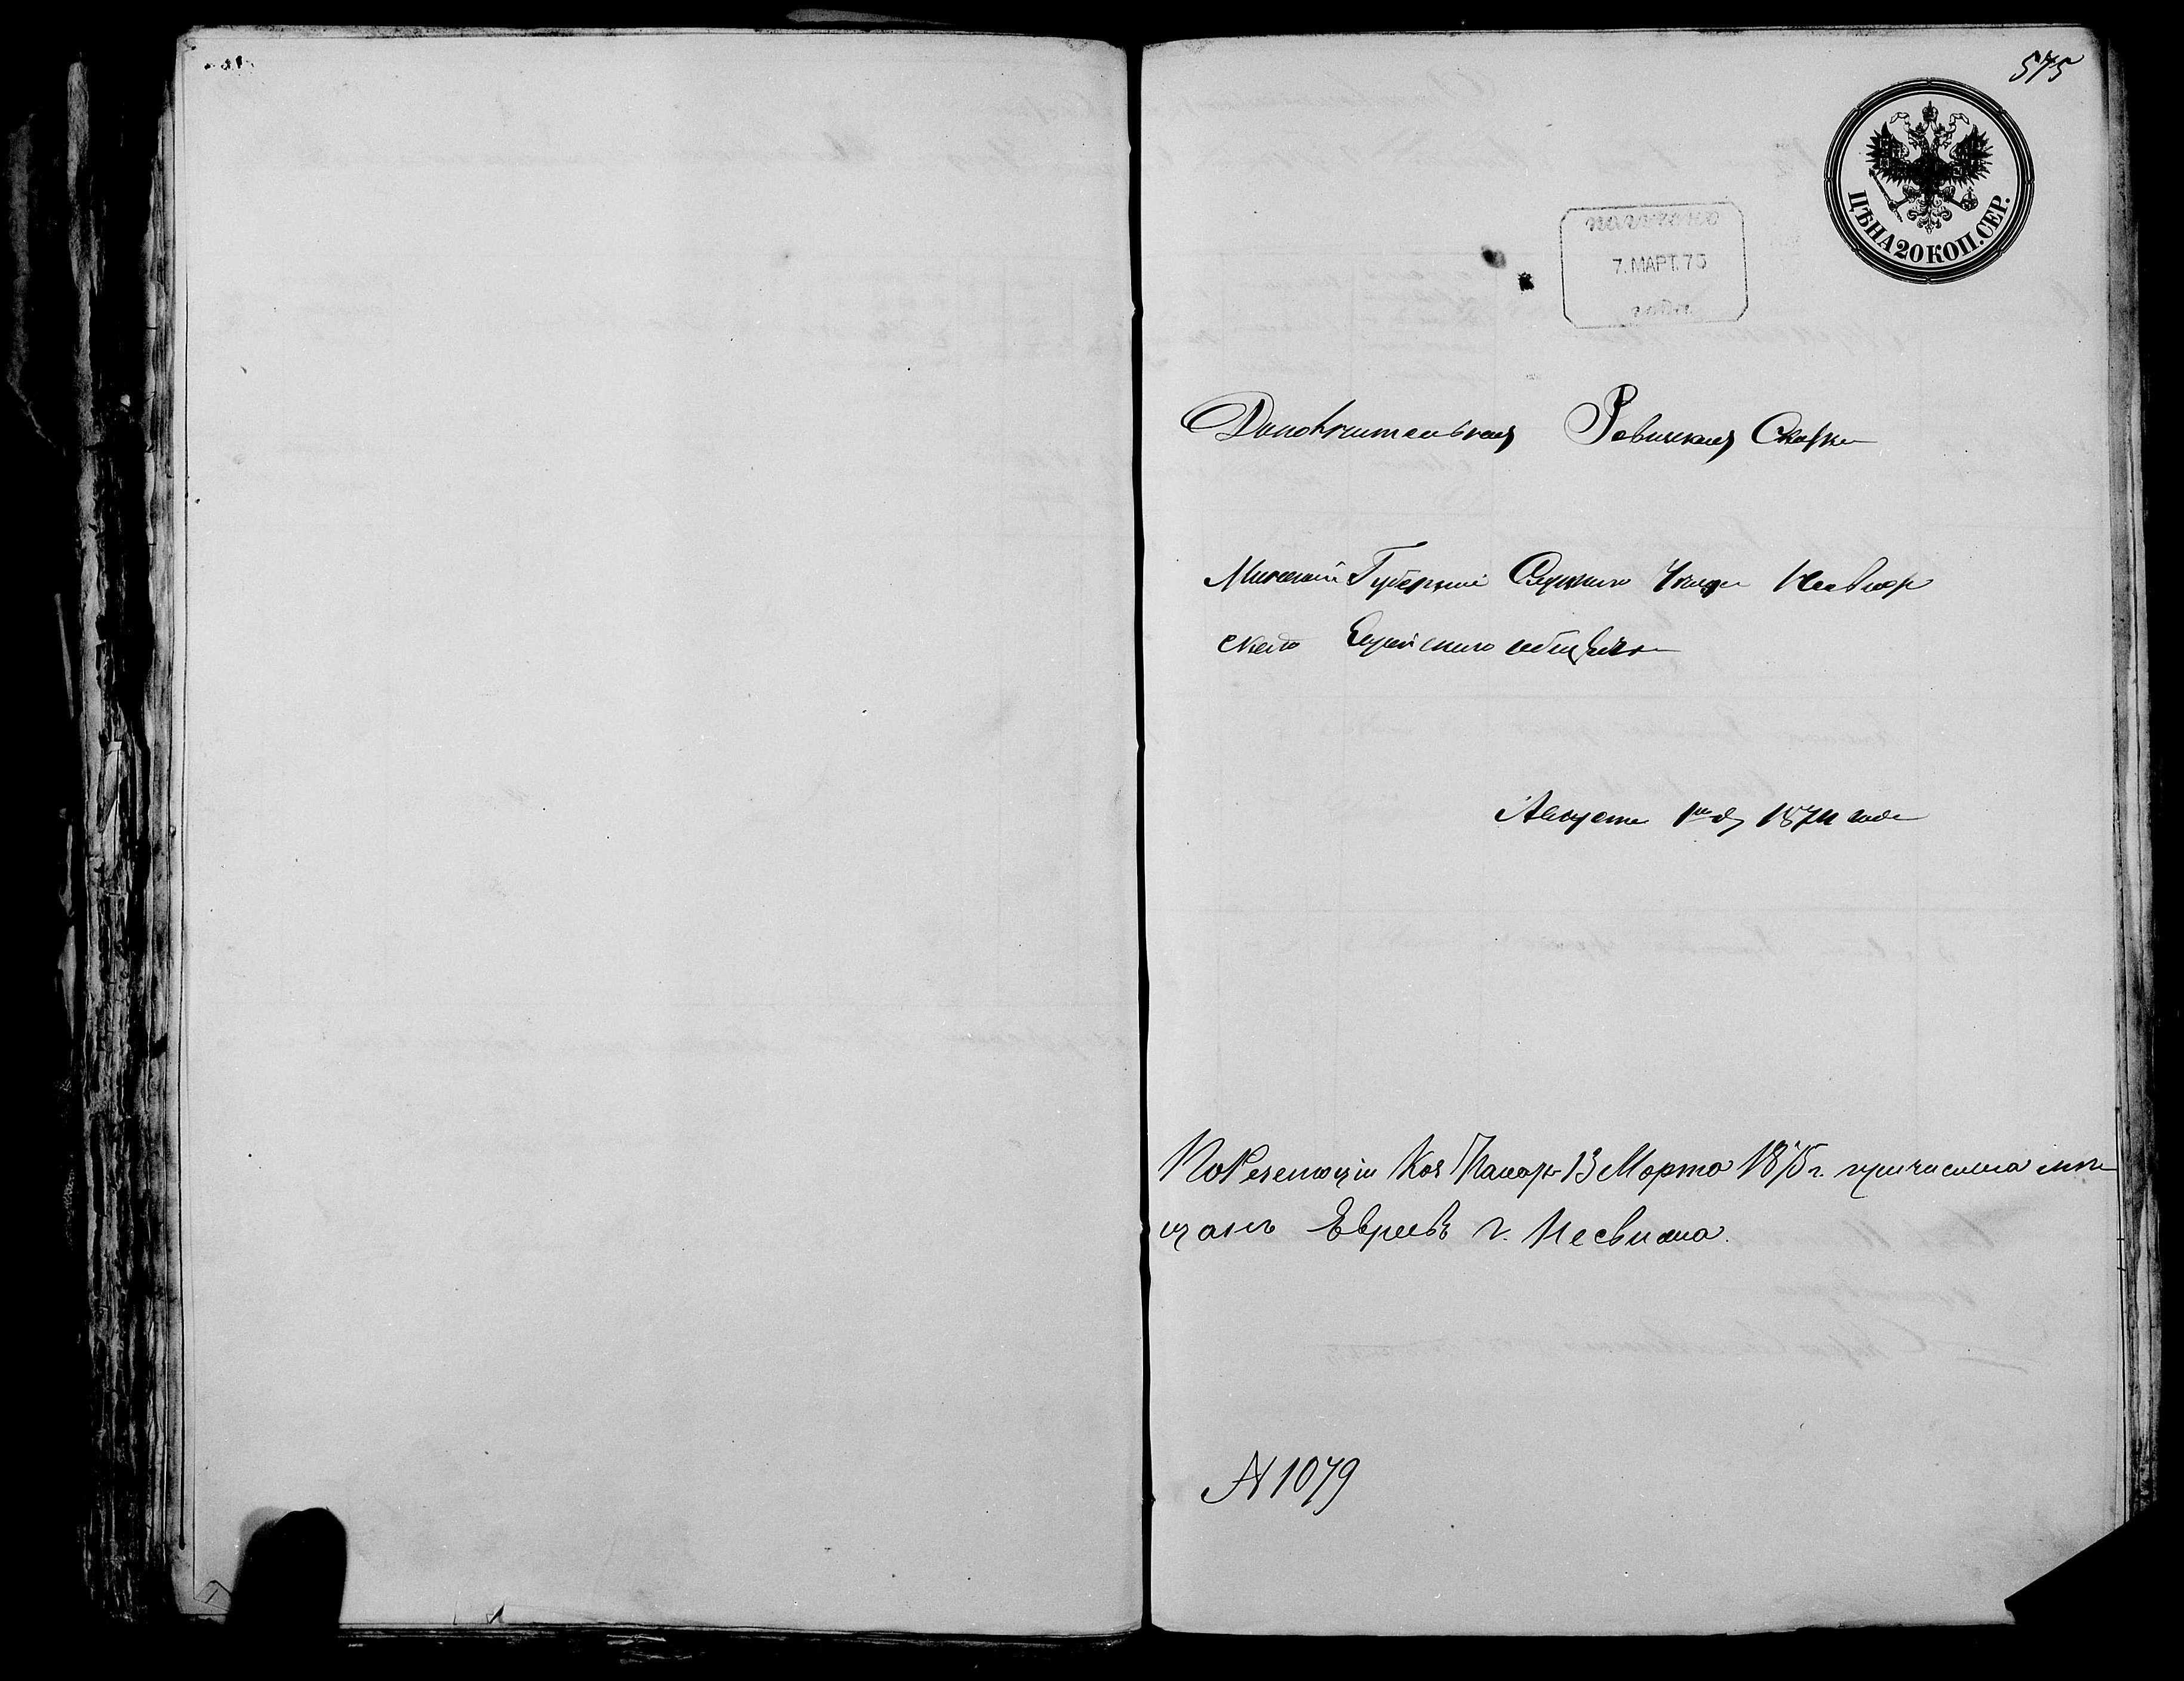 575
ЦѢНА 20 КОП. СЕР.
получено
7. МАРТ. 75
года
Дополнительная Ревизская Сказка
Минской Губерніи Слуцкаго Уезда Несвиж
скаго Еврейскаго общества
Августа 1го д. 1874 года
По Резолюціи Каз Палаты 13 Марта 1875 г. причислена к мѣ
щанъ Евреевъ г. Несвижа.
№ 1079